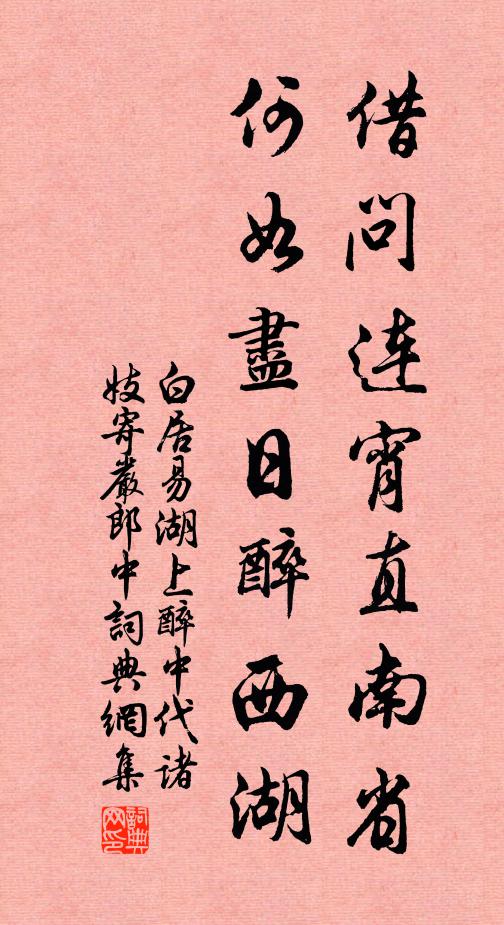 借問連宵直南省
何如盡日醉西湖
白居易湖上醉中代諸
妓寄嚴郎中詞典網集
詞典网印